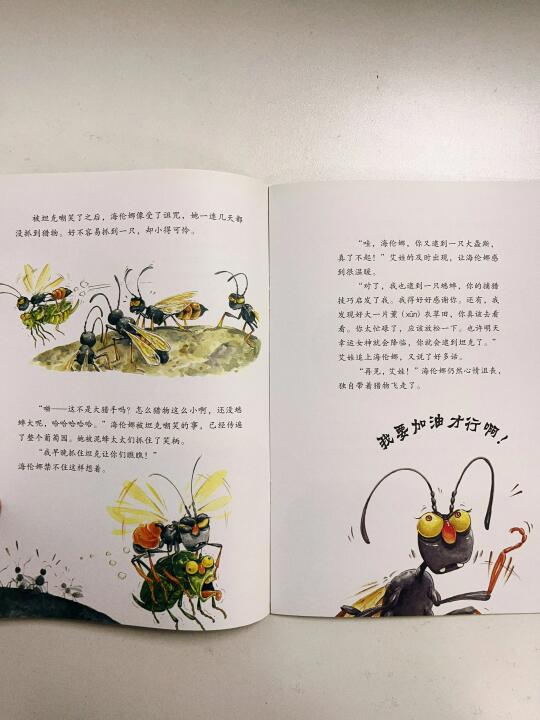 被坦克嘲笑了之后，海伦娜像受了诅咒，她一连几天都
没抓到猎物。好不容易抓到一只，却小得可怜。
“嘣——这不是大猎手吗？怎么猎物这么小啊，还没蟋
蟀大呢，哈哈哈哈哈。”海伦娜被坦克嘲笑的事，已经传遍
了整个葡萄园。她被泥蜂太太们抓住了笑柄。
“我早晚抓住坦克让你们瞧瞧！”
海伦娜禁不住这样想着。
“哇，海伦娜，你又逮到一只大螽斯，
真了不起！”艾娃的及时出现，让海伦娜感
到很温暖。
“对了，我也逮到一只蟋蟀，你的捕猎
技巧启发了我。我得好好感谢你。还有，我
发现好大一片薰（xūn）衣草田，你真该去看
看。你太忙碌了，应该放松一下。也许明天
幸运女神就会降临，你就会逮到坦克了。”
艾娃追上海伦娜，又说了好多话。
“再见，艾娃！”海伦娜仍然心情沮丧，
独自带着猎物飞走了。
我要加油才行啊！